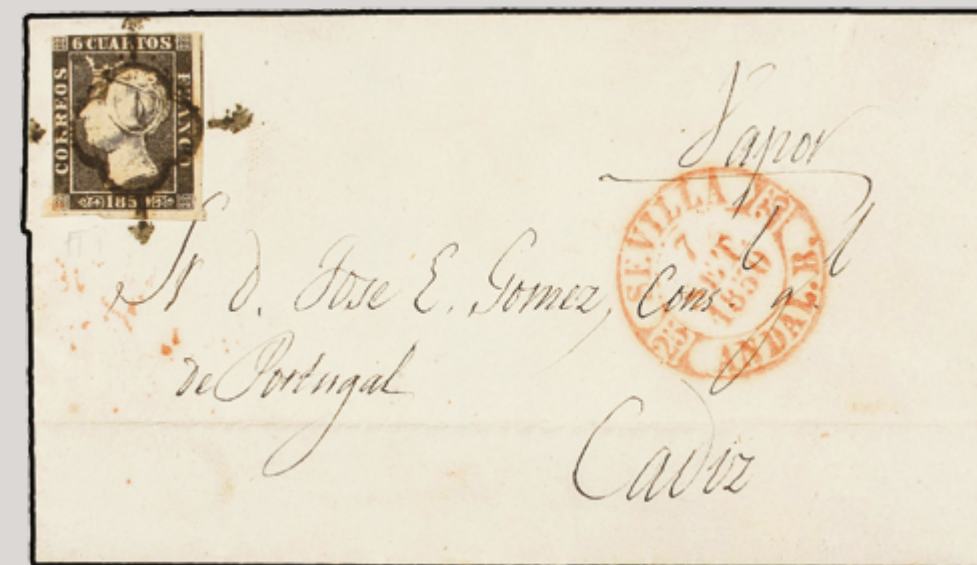 6 CUARTOS
CORREOS
FRANCO
1850
Vapor
SEVILLA
7
SET.
1850
ANDAL. B.
Sr D. Jose E. Gomez, Cons g.
de Portugal
Cadiz